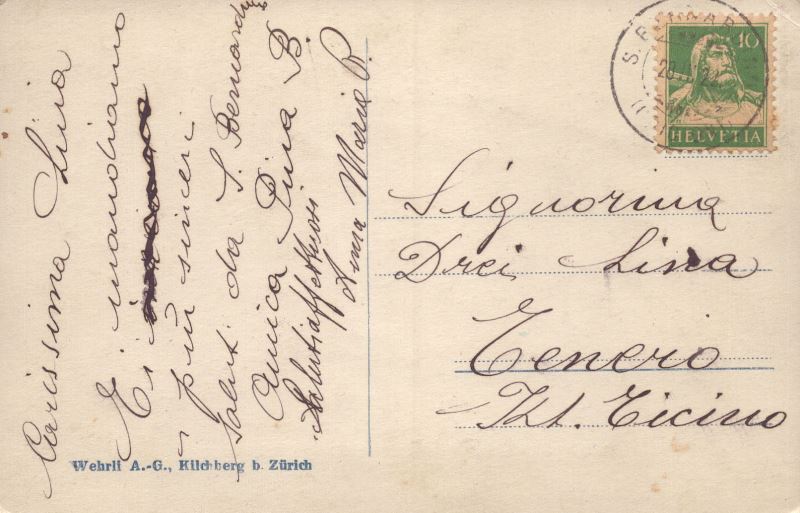 Carissima Lina
Ei mandiamo
i più sinceri
saluti da S. Bernardino
Amica Pina B.
Saluti affettuosi
Anna Maria P.
Wehrli A.-G., Kilchberg b. Zürich
10
HELVETIA
Signorina
Drei Lina
Tenero
Kt. Ticino